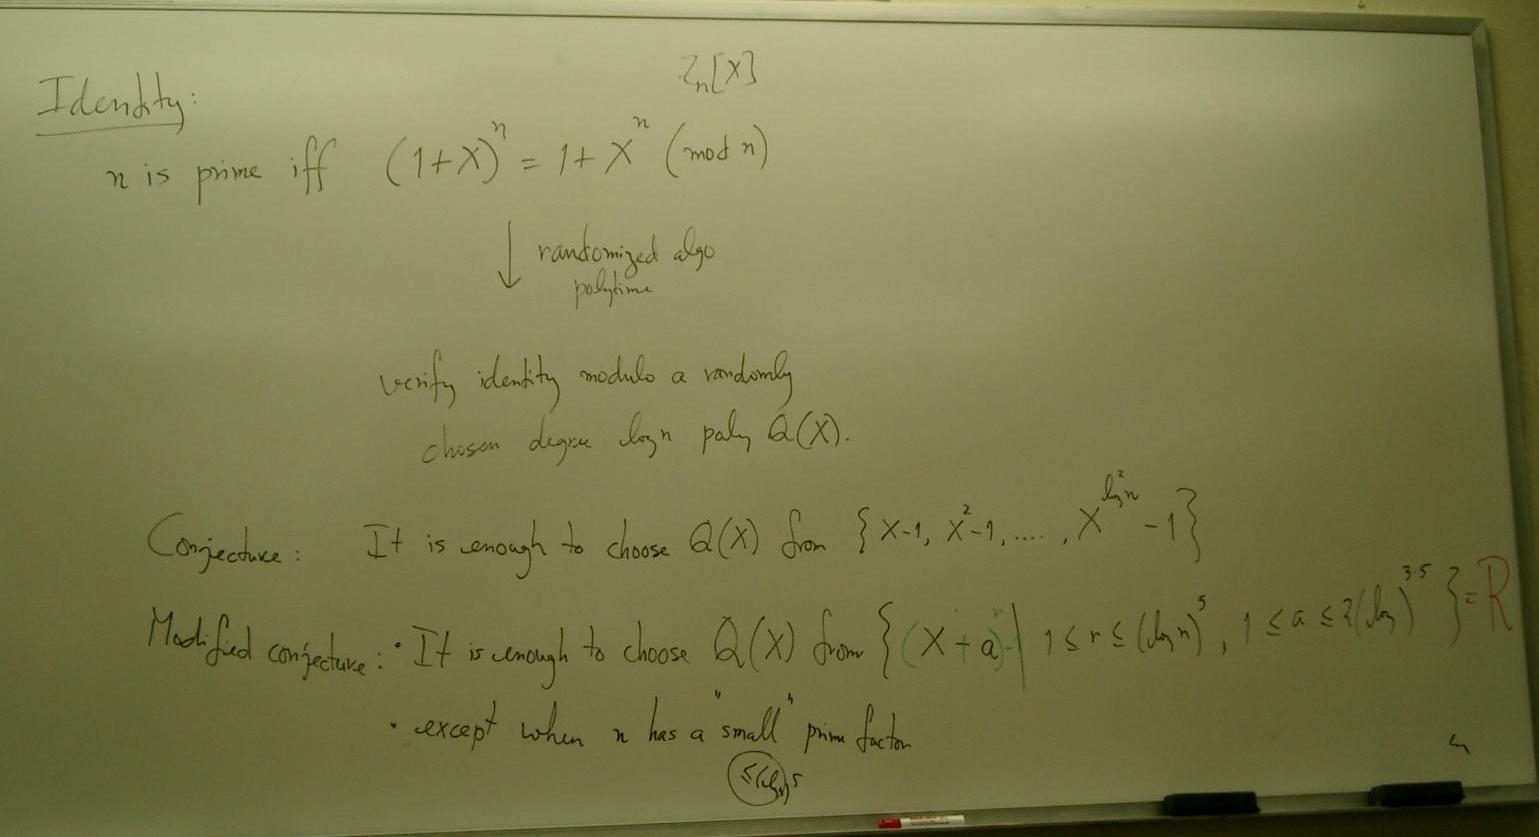 Z_n[X]
Identity:
n is prime iff (1+X)^n = 1+X^n (mod n)
↓ randomized algo
polytime
verify identity modulo a randomly
chosen degree log n poly Q(X).
Conjecture: It is enough to choose Q(X) from {X-1, X^2-1, ...., X^{log^2 n} -1}
Modified conjecture: • It is enough to choose Q(X) from {(X+a)^r-1 | 1≤r≤(log n)^5, 1≤a≤2(log)^{3.5}} = R
• except when n has a "small" prime factor
≤(log n)^5